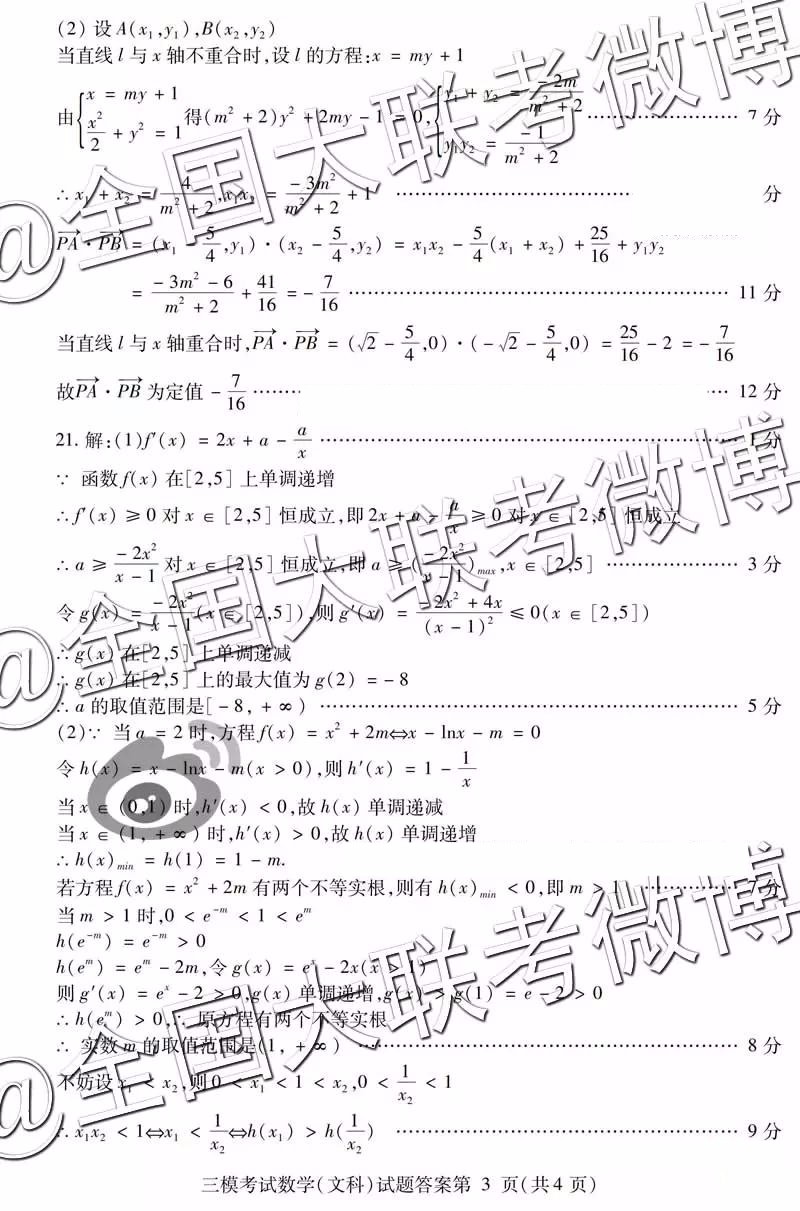 (2) 设 A(x₁,y₁),B(x₂,y₂)
当直线 l 与 x 轴不重合时,设 l 的方程:x = my + 1
由{x = my + 1, x²/2 + y² = 1 得(m² + 2)y² + 2my − 1 = 0,{y₁ + y₂ = −2m/(m² + 2), y₁y₂ = −1/(m² + 2) …………………… 7 分
∴ x₁ + x₂ = 4/(m² + 2), x₁x₂ = −3m²/(m² + 2) + 1 …………………… 分
PA→·PB→ = (x₁ − 5/4,y₁)·(x₂ − 5/4,y₂) = x₁x₂ − 5/4(x₁ + x₂) + 25/16 + y₁y₂
= (−3m² − 6)/(m² + 2) + 41/16 = −7/16 …………………… 11 分
当直线 l 与 x 轴重合时,PA→·PB→ = (√2 − 5/4,0)·(−√2 − 5/4,0) = 25/16 − 2 = −7/16
故PA→·PB→ 为定值 −7/16 …………………… 12 分
21. 解:(1)f′(x) = 2x + a − a/x …………………… 1 分
∵ 函数 f(x) 在[2,5] 上单调递增
∴ f′(x) ≥ 0 对 x ∈ [2,5] 恒成立,即 2x + a − a/x ≥ 0 对 x ∈ [2,5] 恒成立
∴ a ≥ −2x²/(x − 1) 对 x ∈ [2,5] 恒成立,即 a ≥ (−2x²/(x − 1))max,x ∈ [2,5] …………………… 3 分
令 g(x) = −2x²/(x − 1)(x ∈ [2,5]),则 g′(x) = (−2x² + 4x)/(x − 1)² ≤ 0(x ∈ [2,5])
∴ g(x) 在[2,5] 上单调递减
∴ g(x) 在[2,5] 上的最大值为 g(2) = −8
∴ a 的取值范围是[−8, +∞) …………………… 5 分
(2)∵ 当 a = 2 时,方程 f(x) = x² + 2m⇔x − lnx − m = 0
令 h(x) = x − lnx − m(x > 0),则 h′(x) = 1 − 1/x
当 x ∈ (0,1) 时,h′(x) < 0,故 h(x) 单调递减
当 x ∈ (1, +∞) 时,h′(x) > 0,故 h(x) 单调递增
∴ h(x)min = h(1) = 1 − m.
若方程 f(x) = x² + 2m 有两个不等实根,则有 h(x)min < 0,即 m > 1 …………………… 7 分
当 m > 1 时,0 < e⁻ᵐ < 1 < eᵐ
h(e⁻ᵐ) = e⁻ᵐ > 0
h(eᵐ) = eᵐ − 2m,令 g(x) = eˣ − 2x(x > 1)
则 g′(x) = eˣ − 2 > 0,g(x) 单调递增,g(x) > g(1) = e − 2 > 0
∴ h(eᵐ) > 0,∴ 原方程有两个不等实根
∴ 实数 m 的取值范围是(1, +∞) …………………… 8 分
不妨设 x₁ < x₂,则 0 < x₁ < 1 < x₂,0 < 1/x₂ < 1
∴ x₁x₂ < 1⇔x₁ < 1/x₂⇔h(x₁) > h(1/x₂) …………………… 9 分
三模考试数学(文科)试题答案第 3 页(共4页)
@全国大联考微博
@全国大联考微博
@全国大联考微博